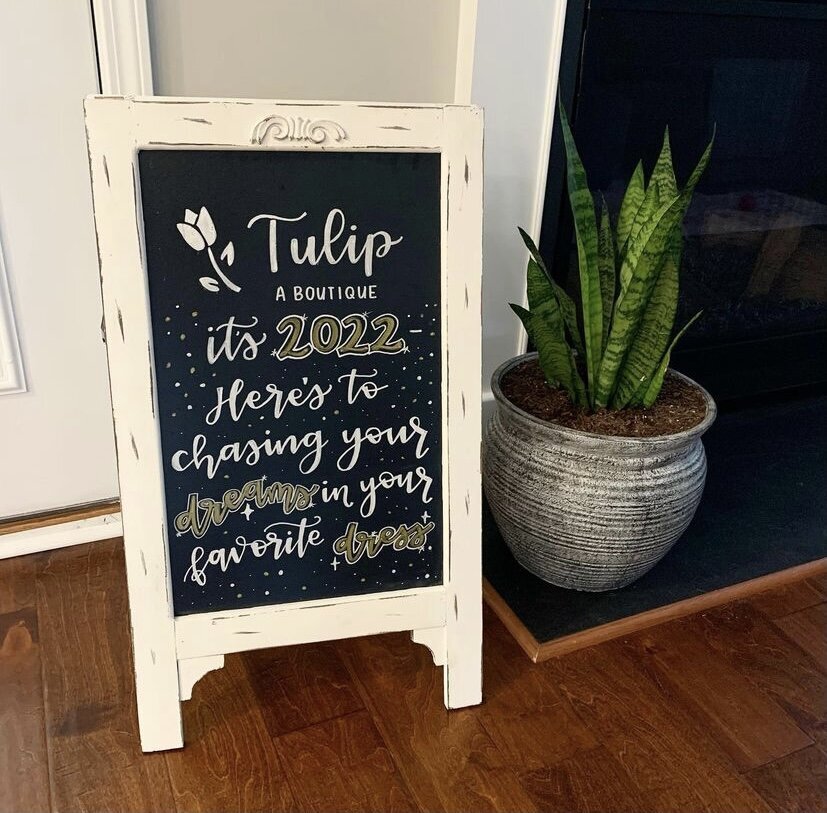 Tulip
A BOUTIQUE
it's 2022-
Here's to
chasing your
dreams in your
favorite dress